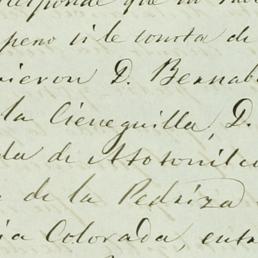 corresponde que
pero si le consta de
vieron D. Bernabé
la Cieneguilla, D.
da de Atotonilco
de la Pedriza
ia Colorada, entre